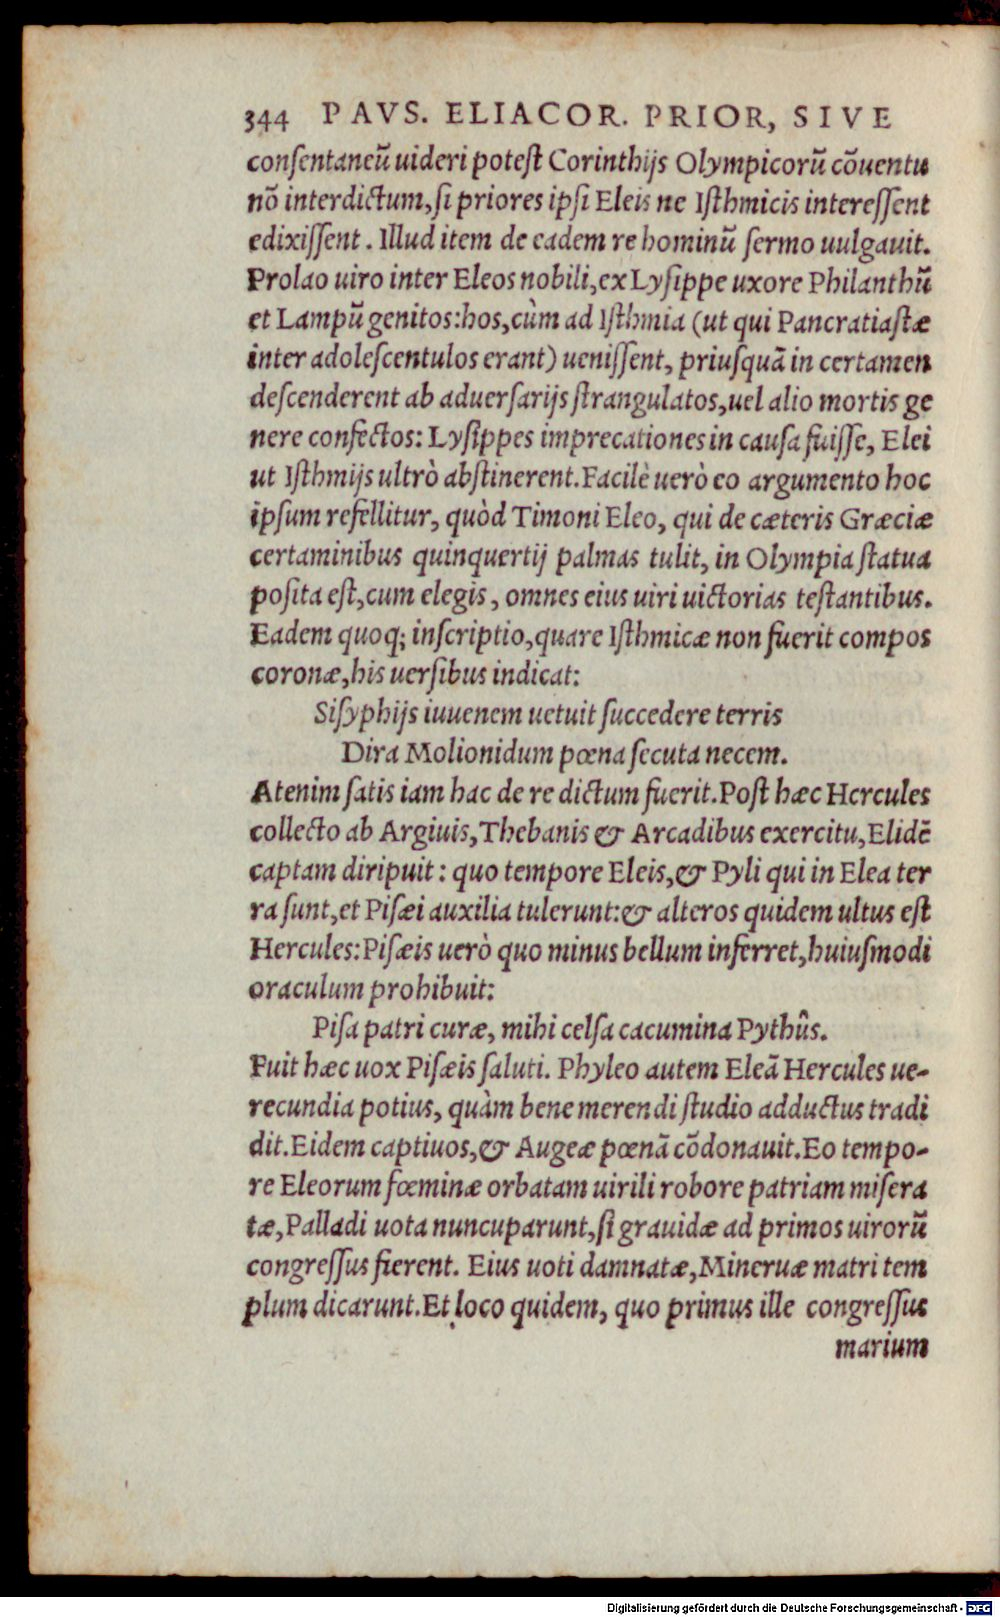 344 PAVS. ELIACOR. PRIOR, SIVE
conſentaneũ uideri poteſt Corinthijs Olympicorũ cõuentu
nõ interdictum, ſi priores ipſi Eleis ne Iſthmicis intereſſent
edixiſſent. Illud item de eadem re hominũ ſermo uulgauit.
Prolao uiro inter Eleos nobili, ex Lyſippe uxore Philanthũ
et Lampũ genitos: hos, cùm ad Iſthmia (ut qui Pancratiaſtæ
inter adoleſcentulos erant) ueniſſent, priuſquã in certamen
deſcenderent ab aduerſarijs ſtrangulatos, uel alio mortis ge
nere confectos: Lyſippes imprecationes in cauſa fuiſſe, Elei
ut Iſthmijs ultrò abſtinerent. Facilè uerò eo argumento hoc
ipſum refellitur, quòd Timoni Eleo, qui de cæteris Græciæ
certaminibus quinquertij palmas tulit, in Olympia ſtatua
poſita eſt, cum elegis, omnes eius uiri uictorias teſtantibus.
Eadem quoq; inſcriptio, quare Iſthmicæ non fuerit compos
coronæ, his uerſibus indicat:
Siſyphijs iuuenem uetuit ſuccedere terris
Dira Molionidum pœna ſecuta necem.
Atenim ſatis iam hac de re dictum fuerit. Poſt hæc Hercules
collecto ab Argiuis, Thebanis & Arcadibus exercitu, Elidẽ
captam diripuit: quo tempore Eleis, & Pyli qui in Elea ter
ra ſunt, et Piſæi auxilia tulerunt: & alteros quidem ultus eſt
Hercules: Piſæis uerò quo minus bellum inferret, huiuſmodi
oraculum prohibuit:
Piſa patri curæ, mihi celſa cacumina Pythûs.
Fuit hæc uox Piſæis ſaluti. Phyleo autem Eleã Hercules ue-
recundia potius, quàm bene merendi ſtudio adductus tradi
dit. Eidem captiuos, & Augeæ pœnã cõdonauit. Eo tempo-
re Eleorum fœminæ orbatam uirili robore patriam miſera
tæ, Palladi uota nuncuparunt, ſi grauidæ ad primos uirorũ
congreſſus fierent. Eius uoti damnatæ, Mineruæ matri tem
plum dicarunt. Et loco quidem, quo primus ille congreſſus
marium
Digitalisierung gefördert durch die Deutsche Forschungsgemeinschaft - DFG